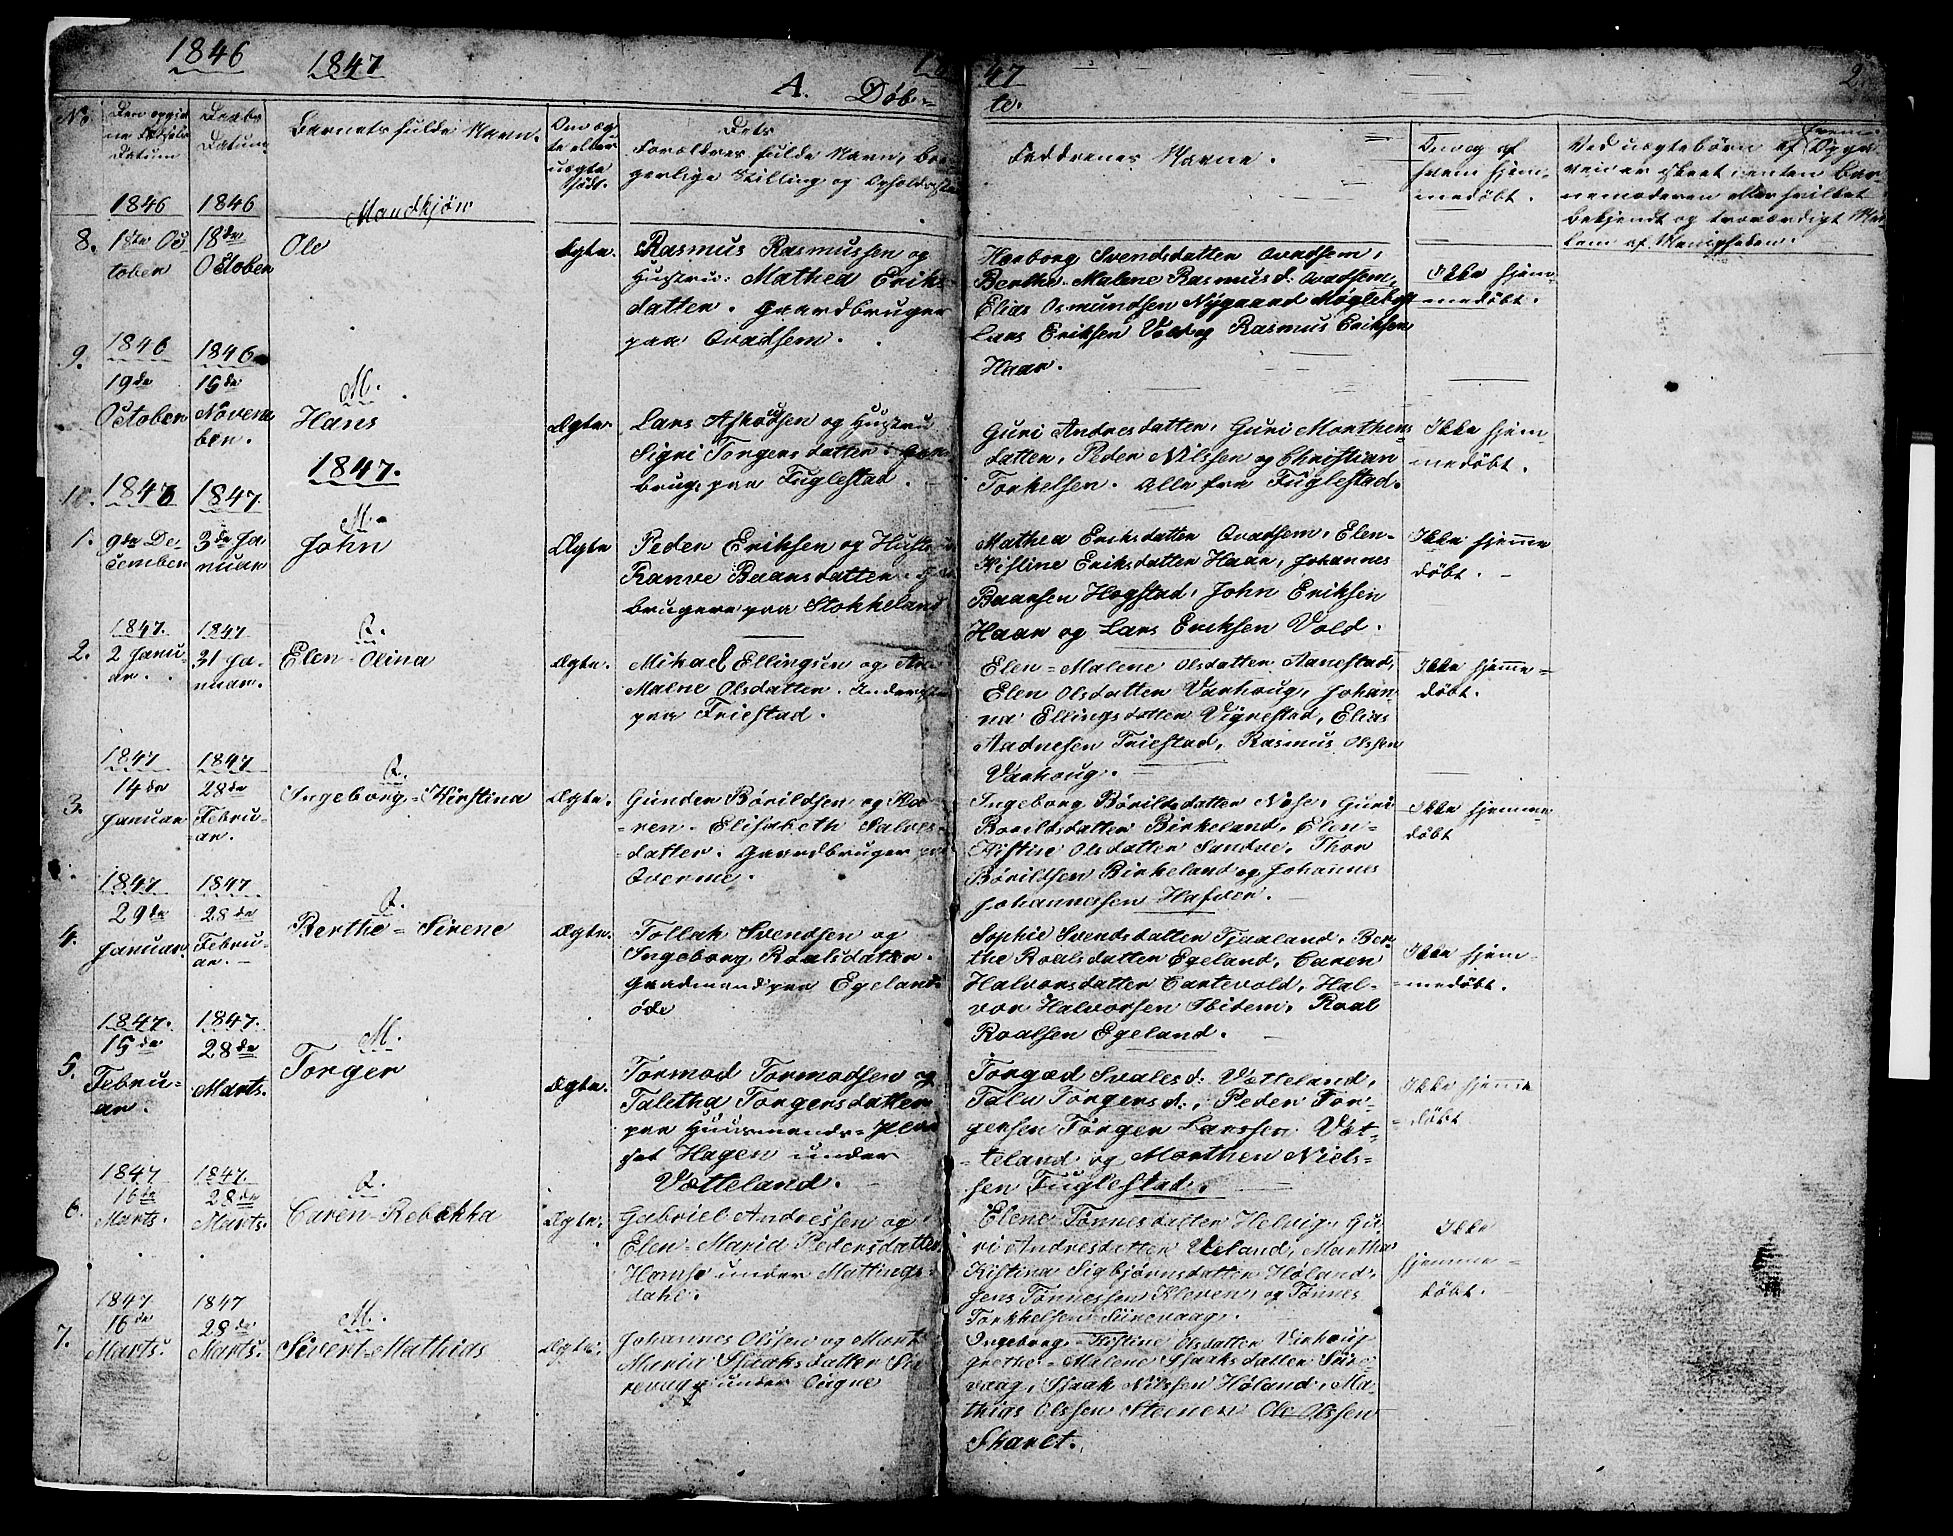 1846 1847 A. Døb- 47 te. 2.
No.
Den opgiv
ne Fødsels
Datum
Daabs
Datum.
Barnets fulde Navn.
Om æg
te eller
uægte
født.
Dets
Forældres fulde Navn, bor-
gerlige Stilling og Opholdssted
Faddrenes Navne.
hjem-
medøbt.
1846 1846 Mandkjøn
8. 18de Oc
tober
18de
October
Ole
Ægte.
Rasmus Rasmussen og
Hustru: Mathea Eriks
datter. Gaardbruger
paa Qvadsem.
Herborg Svendsdatter Qvadsem,
Berthe Malene Rasmusd: Qvadsem,
Elias Osmundsen Nygaard Møglebost
Lars Eriksen Vold og Rasmus Eriksen
Haar.
Ikke hjem-
medøbt.
1846 1846
9. 19de
October
15de
Novem
ber.
M.
Hans
Ægte.
Lars og Hustru
Sigri Torgersdatter. Gaar
brug: paa Fuglestad.
Guri Andresdatter, Guri Morthens
datter, Peder Nilssen og Christian
Torkelsen. Alle fra Fuglestad.
Ikke hjem-
medøbt.
1847.
10. 1846 1847
1. 9de De-
cember
3de Ja
nuar
M.
John
Ægte
Peder Eriksen og Hustru
Ranve Baarsdatter.
brugere paa Stokkeland
Mathea Eriksdatter Qvadsem, Elen-
Kistine Eriksdatter Haar, Johannes
Baarsen Hogstad, John Eriksen
Haar og Lars Eriksen Vold.
Ikke hjemme
døbt.
1847. 1847
2. 2 Janu-
ar.
31 Ja-
nuar.
Q.
Elen-Olina
Ægte.
Mihael Ellingsen og
Malne Olsdatter.
paa Friestad.
Elen-Malene Olsdatter Aanestad,
Elen Olsdatter Varhoug, Johan-
na Ellingsdatter Vigrestad, Elias
Aadnesen Friestad, Rasmus Olssen
Varhoug.
Ikke hjemme-
døbt.
1847 1847
3. 14de
Januar
28de
Febru-
ar.
Q.
Ingeborg-Kirstina
Ægte.
Gunder Børildsen og Ka-
ren Elisabeth Salves-
datter. Gaardbruger
Ingeborg Børildsdatter Nose, Guri
Børildsdatter Birkeland, Elen-
Kistine Olsdatter Sandve, Thor
Børildsen Birkeland og Johannes
Johannessen
Ikke hjemme
døbt
1847 1847
4. 29de
Januar.
28de
Febru-
ar.
Q.
Berthe-Sirene
Ægte.
Tollak Svendsen og
Ingeborg Roalsdatter.
Gaardmand paa Egeland
øde
Sophie Svendsdatter Tjaaland, Ber
the Roalsdatter Egeland, Caren
Halvorsdatter Cartevold, Hal-
vor Halvorsen Ibidem, Roal
Roalsen Egeland.
Ikke hjem-
medøbt.
1847. 1847.
5. 15de
Febru-
ar.
28de
Marts.
M.
Torger
Ægte.
Tormod Tormodsen og
Taletha Torgersdatter
paa Huusmands-Plad
set Hagen under
Vætteland.
Torgød Svalesd: Vætteland,
Talu Torgersd:, Peder Tor-
gersen Torger Larssen Væt-
teland og Morthen Niels-
sen Fuglestad.
Ikke hjemme
døbt
1847 1847.
6. 16de
Marts.
28de
Marts.
Q.
Caren-Rebekka
Ægte.
Gabriel Andressen og
Elen Maria Pedersdatter
Homse under Mattings-
dahl.
Elene Tønnesdatter Helvig, Gu-
ri Andresdatter Veland, Martha
Kistina Sigbjørnsdatter Høland,
Jens Tønnessen Kleven og Tønnes
Torkkelsen Sirevaag.
Ikke
hjemme-
døbt.
1847 1847
7. 16de
Marts.
28de
Marts.
M.
Sivert-Mathias
Ægte.
Johannes Olssen og Mart
Maria Isaaksdatter Si
revaag under Ougne
Ingeborg-Kistine Olsdatter Varhoug
Grethe-Malene Isaaksdatter Sire
vaag, Isaak Nilssen Høland, Ma-
thias Olssen Steenen Ole Olssen
Skaret.